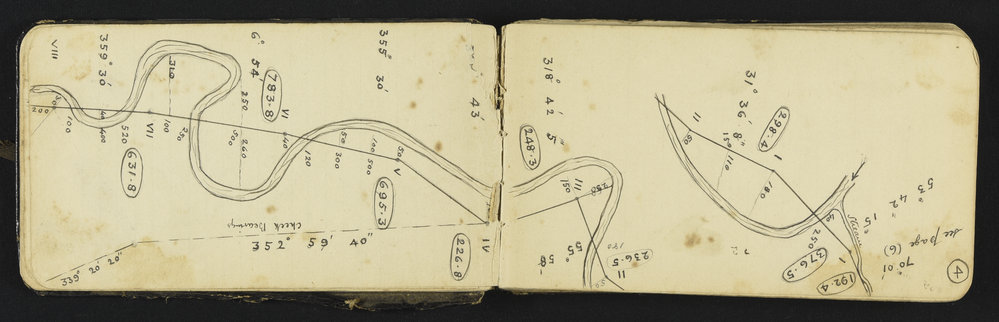 VIII
359° 30'
6° 54'
355° 30'
43'
310
250
783.8
VI
VII
200
100
40
400
520
100
250
500
260
440
120
50
300
100
500
500
V
631.8
695.3
Check Bearings
352° 59' 40"
339° 20' 20"
226.8
IV
318° 42' 5"
248.3
III
150
250
236.5
55° 58'
II
50
31° 36' 8"
298.4
II
50
150
110
180
I
40
250
376.5
192.4
I
Stream
53° 42' 15"
see page (6)
70° 01'
4